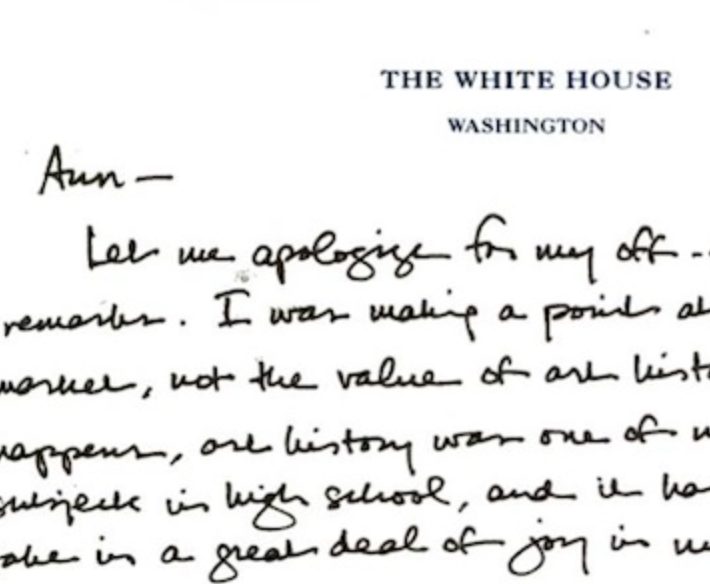 THE WHITE HOUSE
WASHINGTON
Ann —
Let me apologize for my off-
remarks. I was making a point
market, not the value of art
happens, art history was one of
subjects in high school, and it
in a great deal of joy in